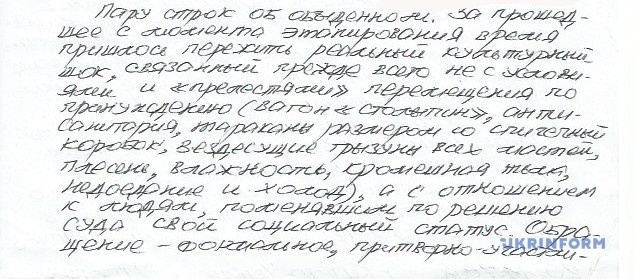 Пару строк об обыденном. За прошед-
шее с момента этапирования время
пришлось пережить реальный культурный
шок, связанный прежде всего не с услови-
ями и «прелестями» перемещения по
принуждению (вагон «столыпин», анти-
санитария, тараканы размером со спичечный
коробок, вездесущие грызуны всех мастей,
плесень, влажность, кромешная тьма,
недоедание и холод), а с отношением
к людям, поменявшим по решению
суда свой социальный статус. Обра-
щение – фокиальное, притворно-участли-
UKRINFORM